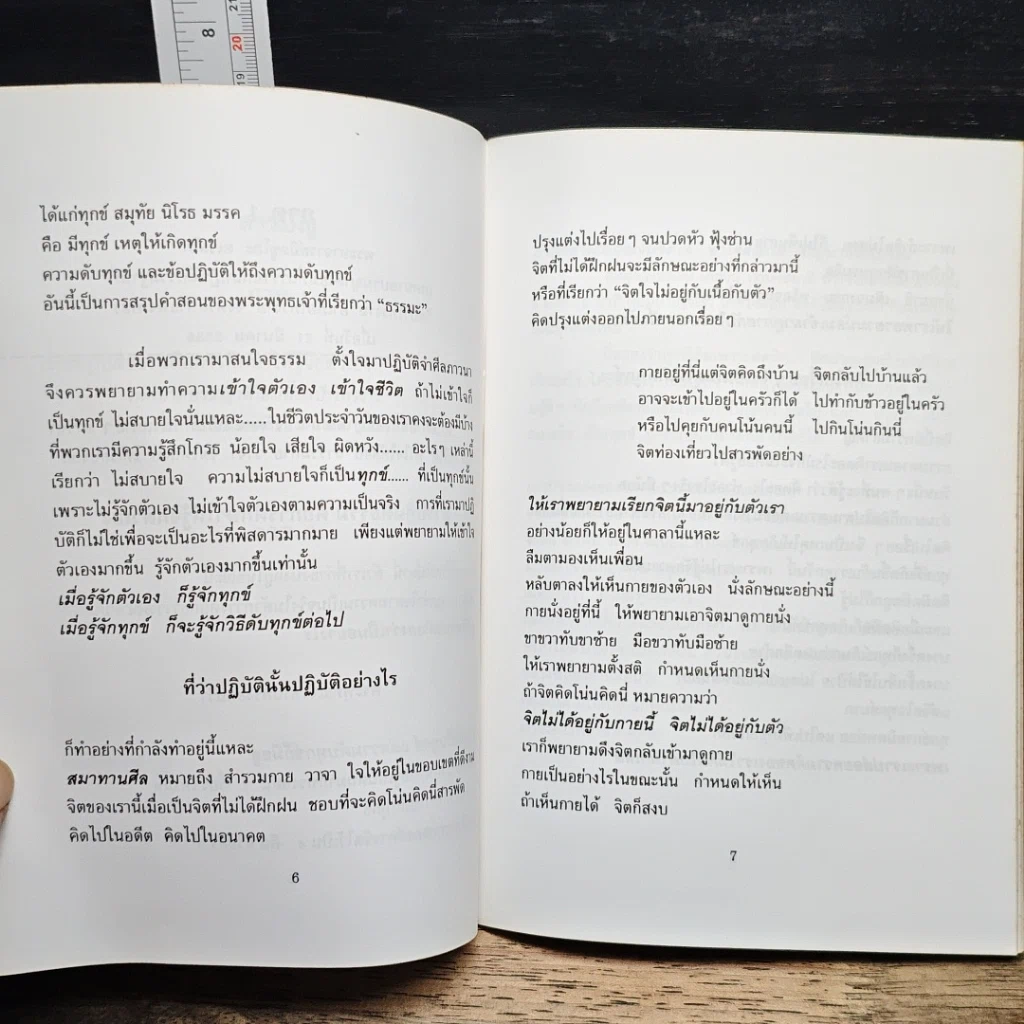 8
21
20
19
ได้แก่ทุกข์ สมุทัย นิโรธ มรรค
คือ มีทุกข์ เหตุให้เกิดทุกข์
ความดับทุกข์ และข้อปฏิบัติให้ถึงความดับทุกข์
อันนี้เป็นการสรุปคำสอนของพระพุทธเจ้าที่เรียกว่า “ธรรมะ”
เมื่อพวกเรามาสนใจธรรม ตั้งใจมาปฏิบัติจำศีลภาวนา
จึงควรพยายามทำความเข้าใจตัวเอง เข้าใจชีวิต ถ้าไม่เข้าใจก็
เป็นทุกข์ ไม่สบายใจนั่นแหละ.....ในชีวิตประจำวันของเราคงจะต้องมีบ้าง
ที่พวกเรามีความรู้สึกโกรธ น้อยใจ เสียใจ ผิดหวัง...... อะไรๆ เหล่านี้
เรียกว่า ไม่สบายใจ ความไม่สบายใจก็เป็นทุกข์...... ที่เป็นทุกข์นั้น
เพราะไม่รู้จักตัวเอง ไม่เข้าใจตัวเองตามความเป็นจริง การที่เรามาปฏิ
บัติก็ไม่ใช่เพื่อจะเป็นอะไรที่พิสดารมากมาย เพียงแต่พยายามให้เข้าใจ
ตัวเองมากขึ้น รู้จักตัวเองมากขึ้นเท่านั้น
เมื่อรู้จักตัวเอง ก็รู้จักทุกข์
เมื่อรู้จักทุกข์ ก็จะรู้จักวิธีดับทุกข์ต่อไป
ที่ว่าปฏิบัตินั้นปฏิบัติอย่างไร
ก็ทำอย่างที่กำลังทำอยู่นี้แหละ
สมาทานศีล หมายถึง สำรวมกาย วาจา ใจให้อยู่ในขอบเขตที่ดีงาม
จิตของเรานี้เมื่อเป็นจิตที่ไม่ได้ฝึกฝน ชอบที่จะคิดโน่นคิดนี่สารพัด
คิดไปในอดีต คิดไปในอนาคต
6
ปรุงแต่งไปเรื่อยๆ จนปวดหัว ฟุ้งซ่าน
จิตที่ไม่ได้ฝึกฝนจะมีลักษณะอย่างที่กล่าวมานี้
หรือที่เรียกว่า “จิตใจไม่อยู่กับเนื้อกับตัว”
คิดปรุงแต่งออกไปภายนอกเรื่อยๆ
กายอยู่ที่นี่แต่จิตคิดถึงบ้าน จิตกลับไปบ้านแล้ว
อาจจะเข้าไปอยู่ในครัวก็ได้ ไปทำกับข้าวอยู่ในครัว
หรือไปคุยกับคนโน้นคนนี้ ไปกินโน่นกินนี่
จิตท่องเที่ยวไปสารพัดอย่าง
ให้เราพยายามเรียกจิตนี้มาอยู่กับตัวเรา
อย่างน้อยก็ให้อยู่ในศาลานี้แหละ
ลืมตามองเห็นเพื่อน
หลับตาลงให้เห็นกายของตัวเอง นั่งลักษณะอย่างนี้
กายนั่งอยู่ที่นี้ ให้พยายามเอาจิตมาดูกายนั่ง
ขาขวาทับขาซ้าย มือขวาทับมือซ้าย
ให้เราพยายามตั้งสติ กำหนดเห็นกายนั่ง
ถ้าจิตคิดโน่นคิดนี่ หมายความว่า
จิตไม่ได้อยู่กับกายนี้ จิตไม่ได้อยู่กับตัว
เราก็พยายามดึงจิตกลับเข้ามาดูกาย
กายเป็นอย่างไรในขณะนั้น กำหนดให้เห็น
ถ้าเห็นกายได้ จิตก็สงบ
7